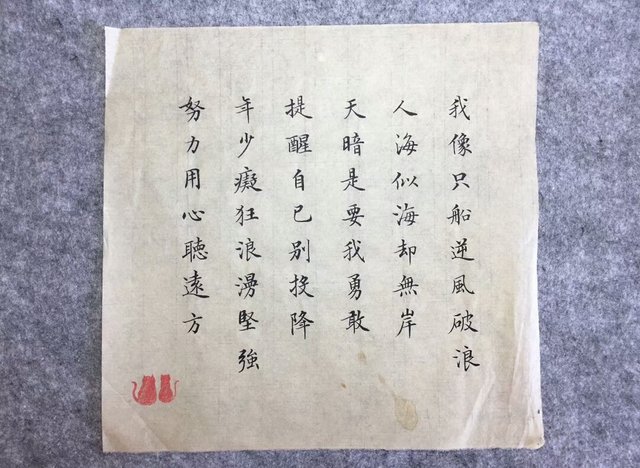 我像只船逆風破浪
人海似海却無岸
天暗是要我勇敢
提醒自己别投降
年少癡狂浪漫堅強
努力用心聽遠方